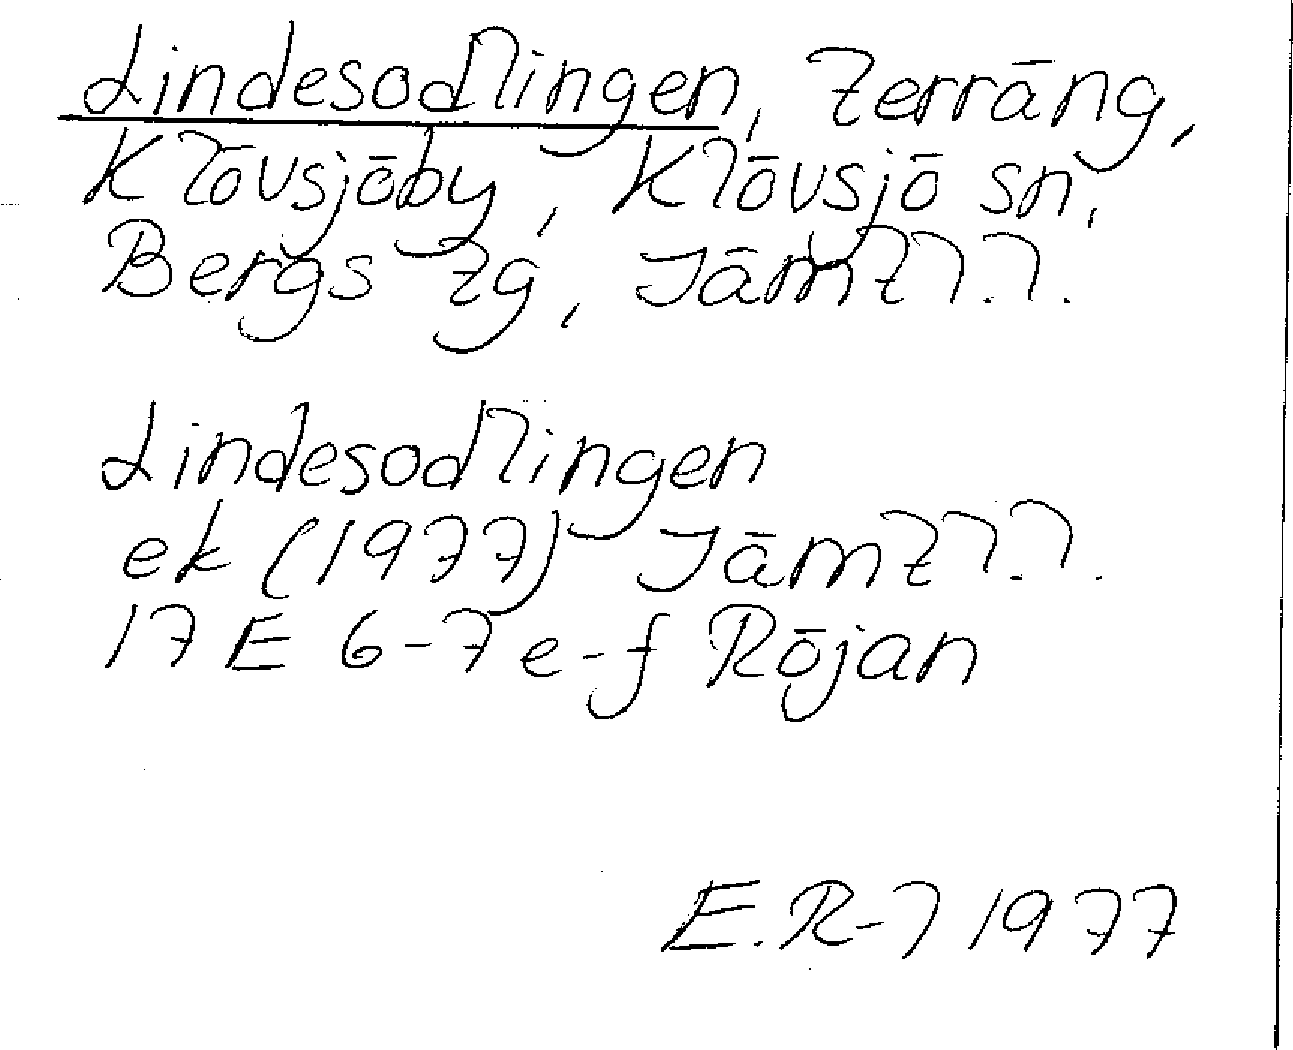 Lindesodlingen, terräng,
Klövsjöby, Klövsjö sn,
Bergs tg, Jämtl.l.
Lindesodlingen
ek (1977) Jämtl.l.
17 E 6-7 e-f Röjan
E.R-l 1977